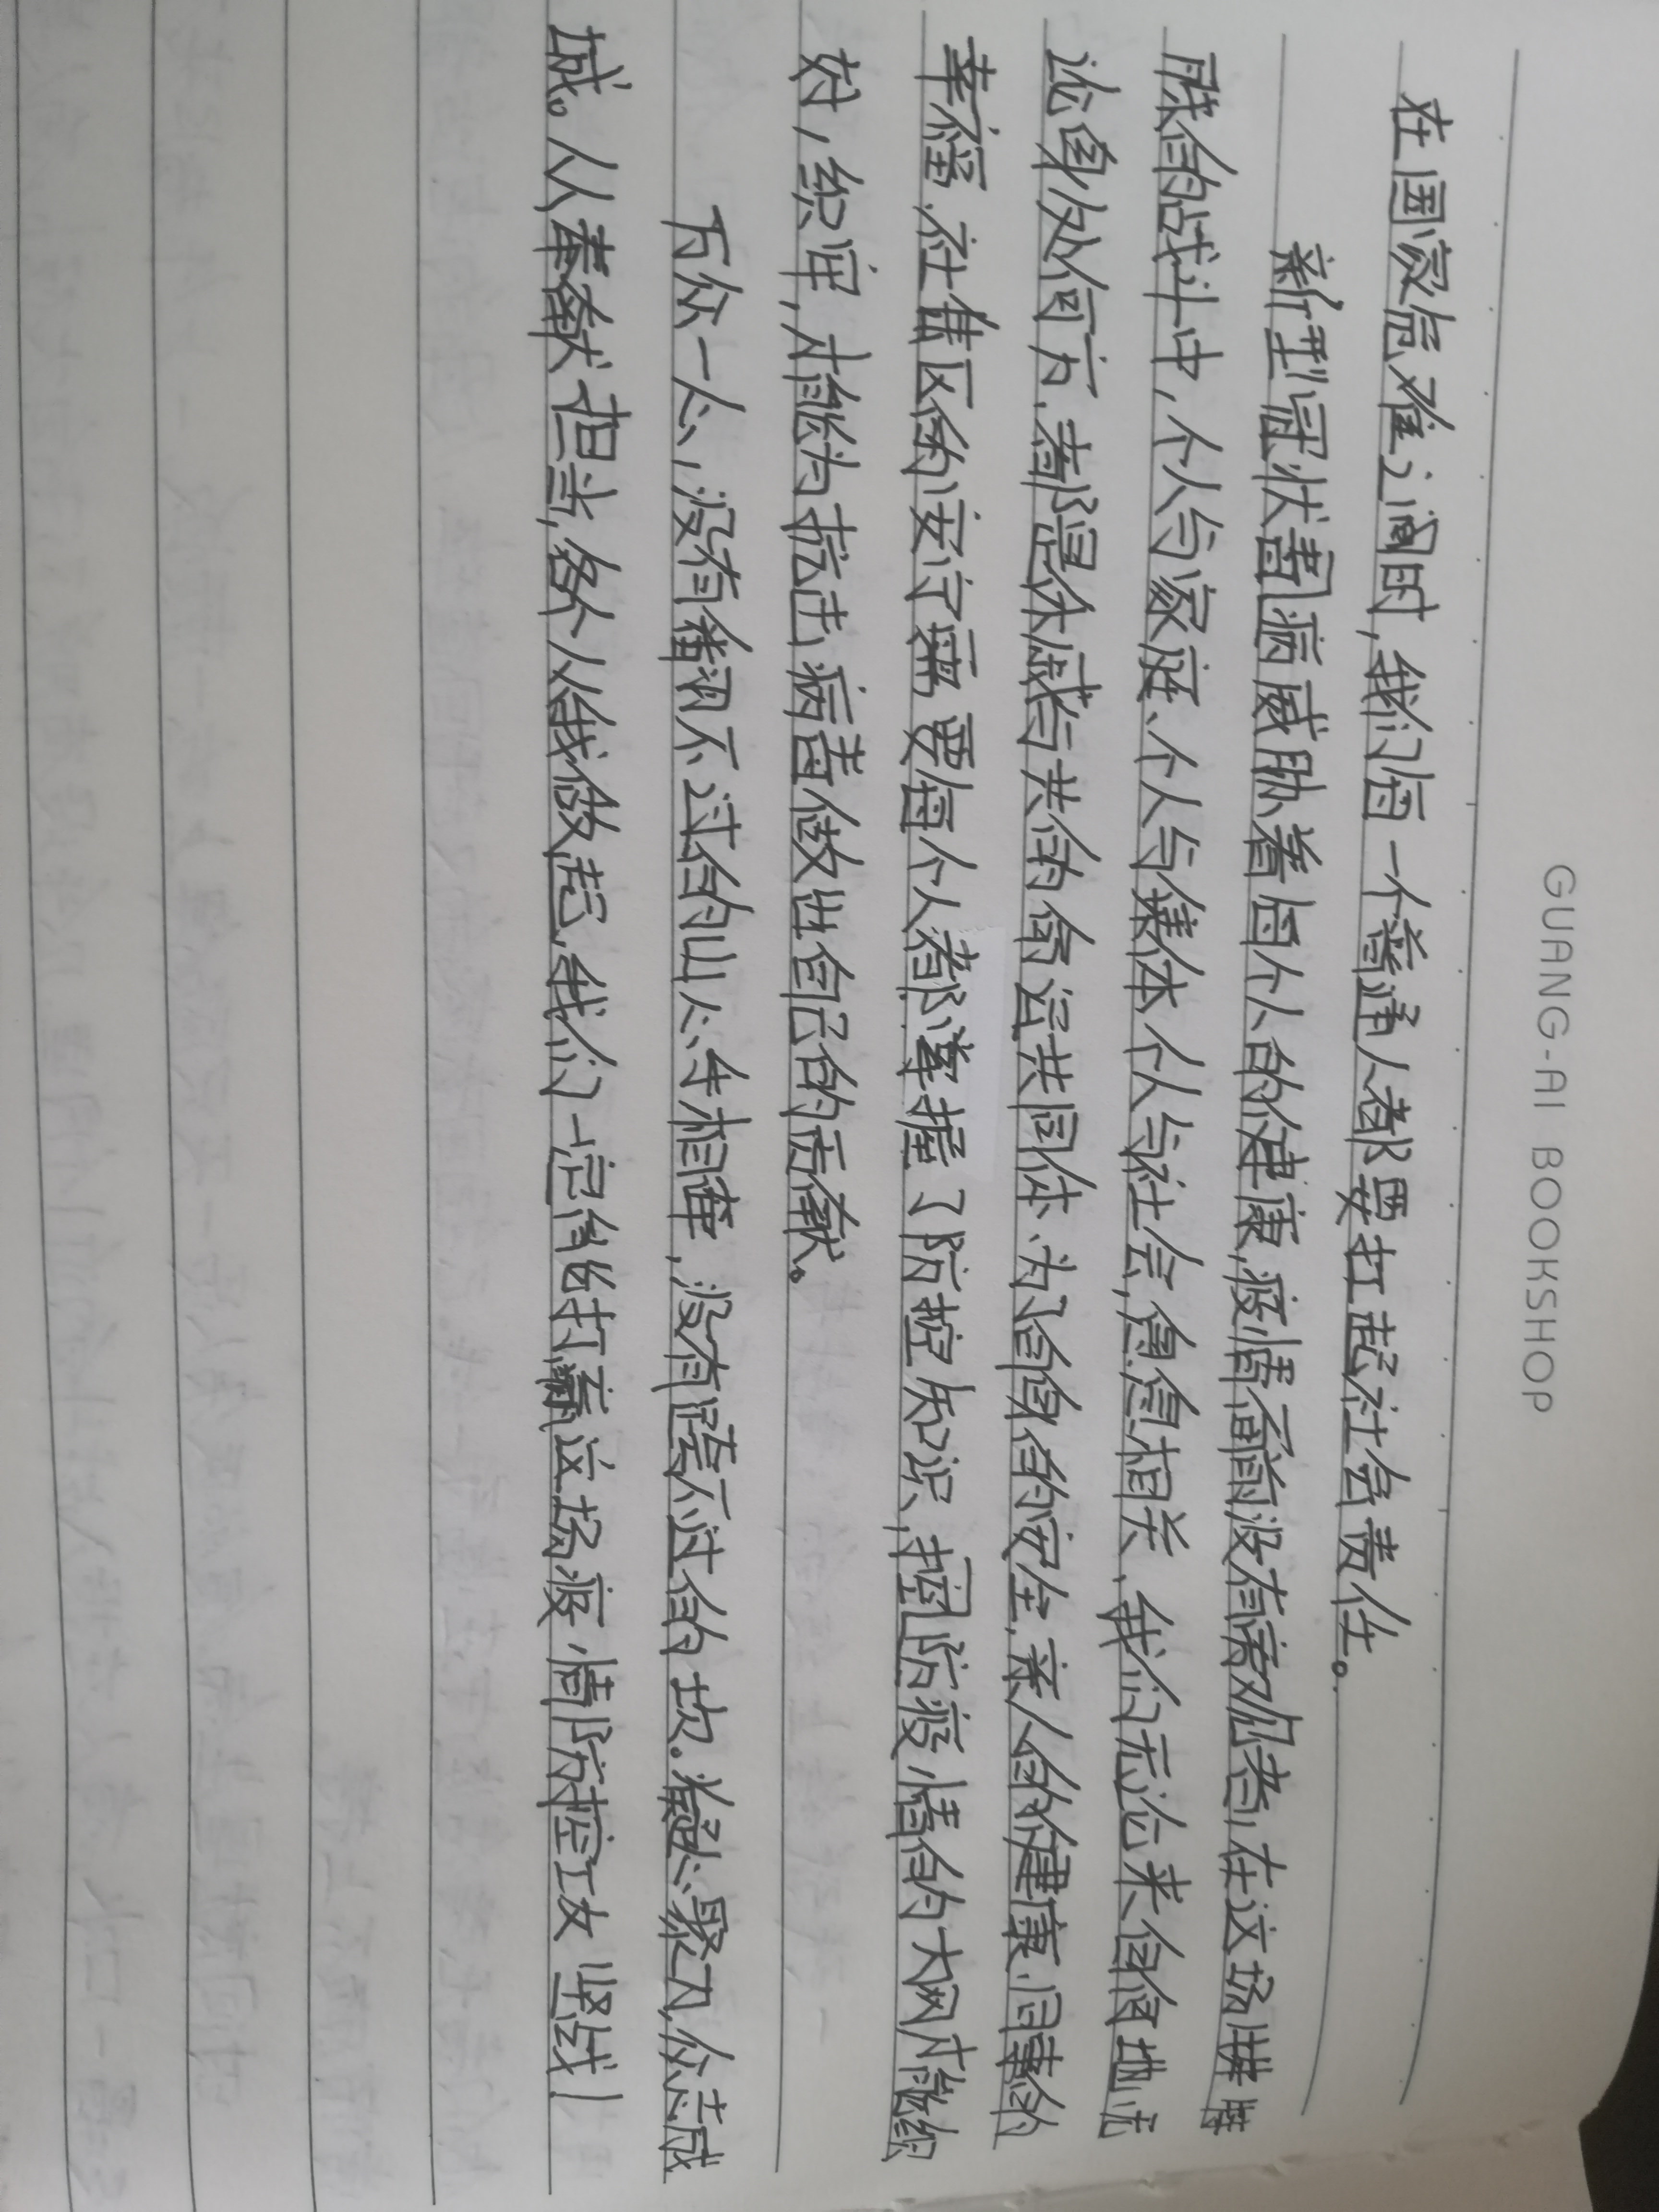 GUANG-AI BOOKSHOP
在国家危难之间时,我们每一个普通人都要扛起社会责任。
新型冠状毒病威胁着每个人的健康,疫情面前没有旁观者,在这场
的战斗中,个人与家庭、个人与集体、个人与社会,息息相关、我们无论来自何地无
论身处何方,都是休戚与共的命运共同体、为了自身的安全,亲人的健康、同事的
幸福、社区的安宁需要每个人都掌握了防控知识,防疫情的大网才能织
好,织牢,才能为抗击病毒做出自己的贡献。
万众一心,没有翻不过的山心手相牵,没有跨不过的坎。凝心聚力,众志成
城。人人奉献担当,各个人从我做起,我们一定能打赢这场疫情防控攻坚战|